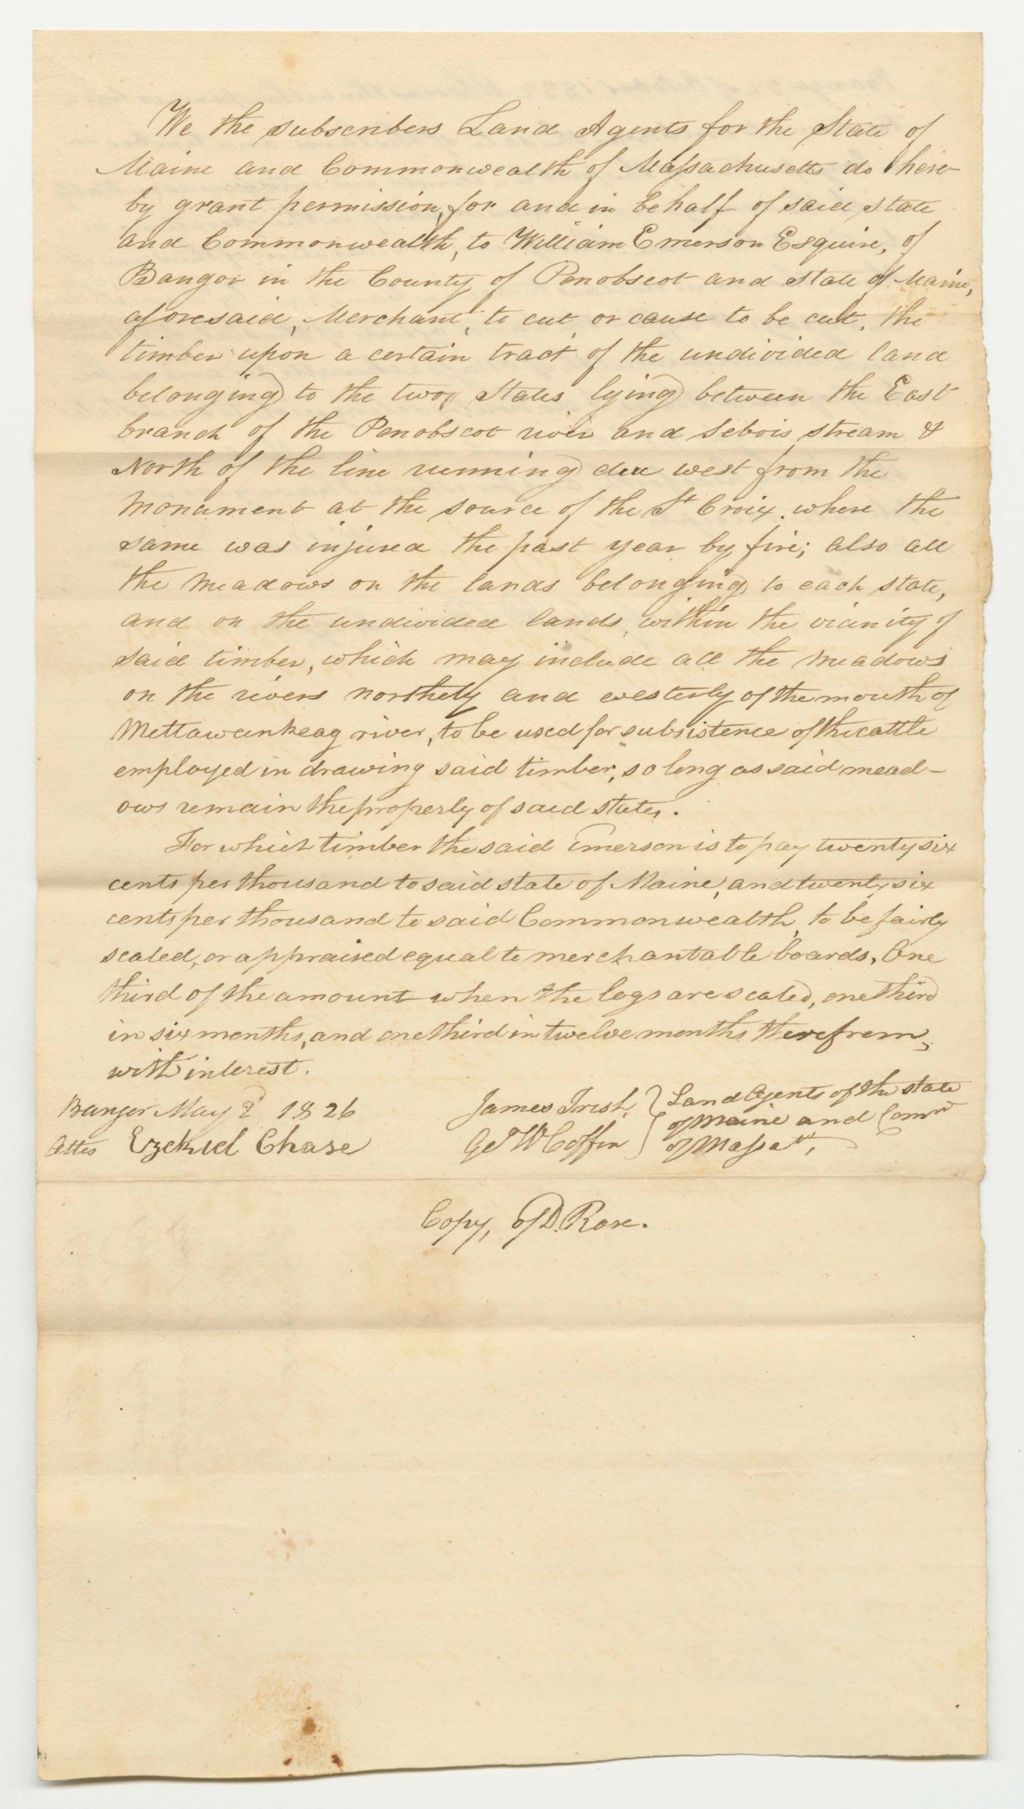 We the subscribers Land Agents for the State of
Maine and Commonwealth of Massachusetts do here-
by grant permission, for and in behalf of said state
and Commonwealth, to William Emerson Esquire, of
Bangor in the County of Penobscot and state of Maine,
aforesaid, Merchant, to cut, or cause to be cut, the
timber upon a certain tract of the undivided land
belonging to the two States lying between the East
branch of the Penobscot river and Sebois stream &
North of the line running due west from the
Monument at the source of the St Croix, where the
same was injured the past year by fire; also all
the meadows on the lands belonging to each state,
and on the undivided lands, within the vicinity of
said timber, which may include all the meadows
on the rivers northely and westerly of the mouth of
Mettawamkeag river, to be used for subsistence of the cattle
employed in drawing said timber, so long as said mead-
ows remain the property of said states.
For which timber the said Emerson is to pay twenty six
cents per thousand to said state of Maine, and twenty six
cents per thousand to said Commonwealth, to be fairly
scaled, or appraised equal to merchantable boards, One
third of the amount when the logs are scaled, one third
in six months, and one third in twelve months therefrom,
with interest.
Bangor May 2d 1826
Attes Ezekiel Chase
James Irish, } Land Agents of the state
Ge. W Coffin } of Maine and Comn
of Massa
Copy, of D. Rose.